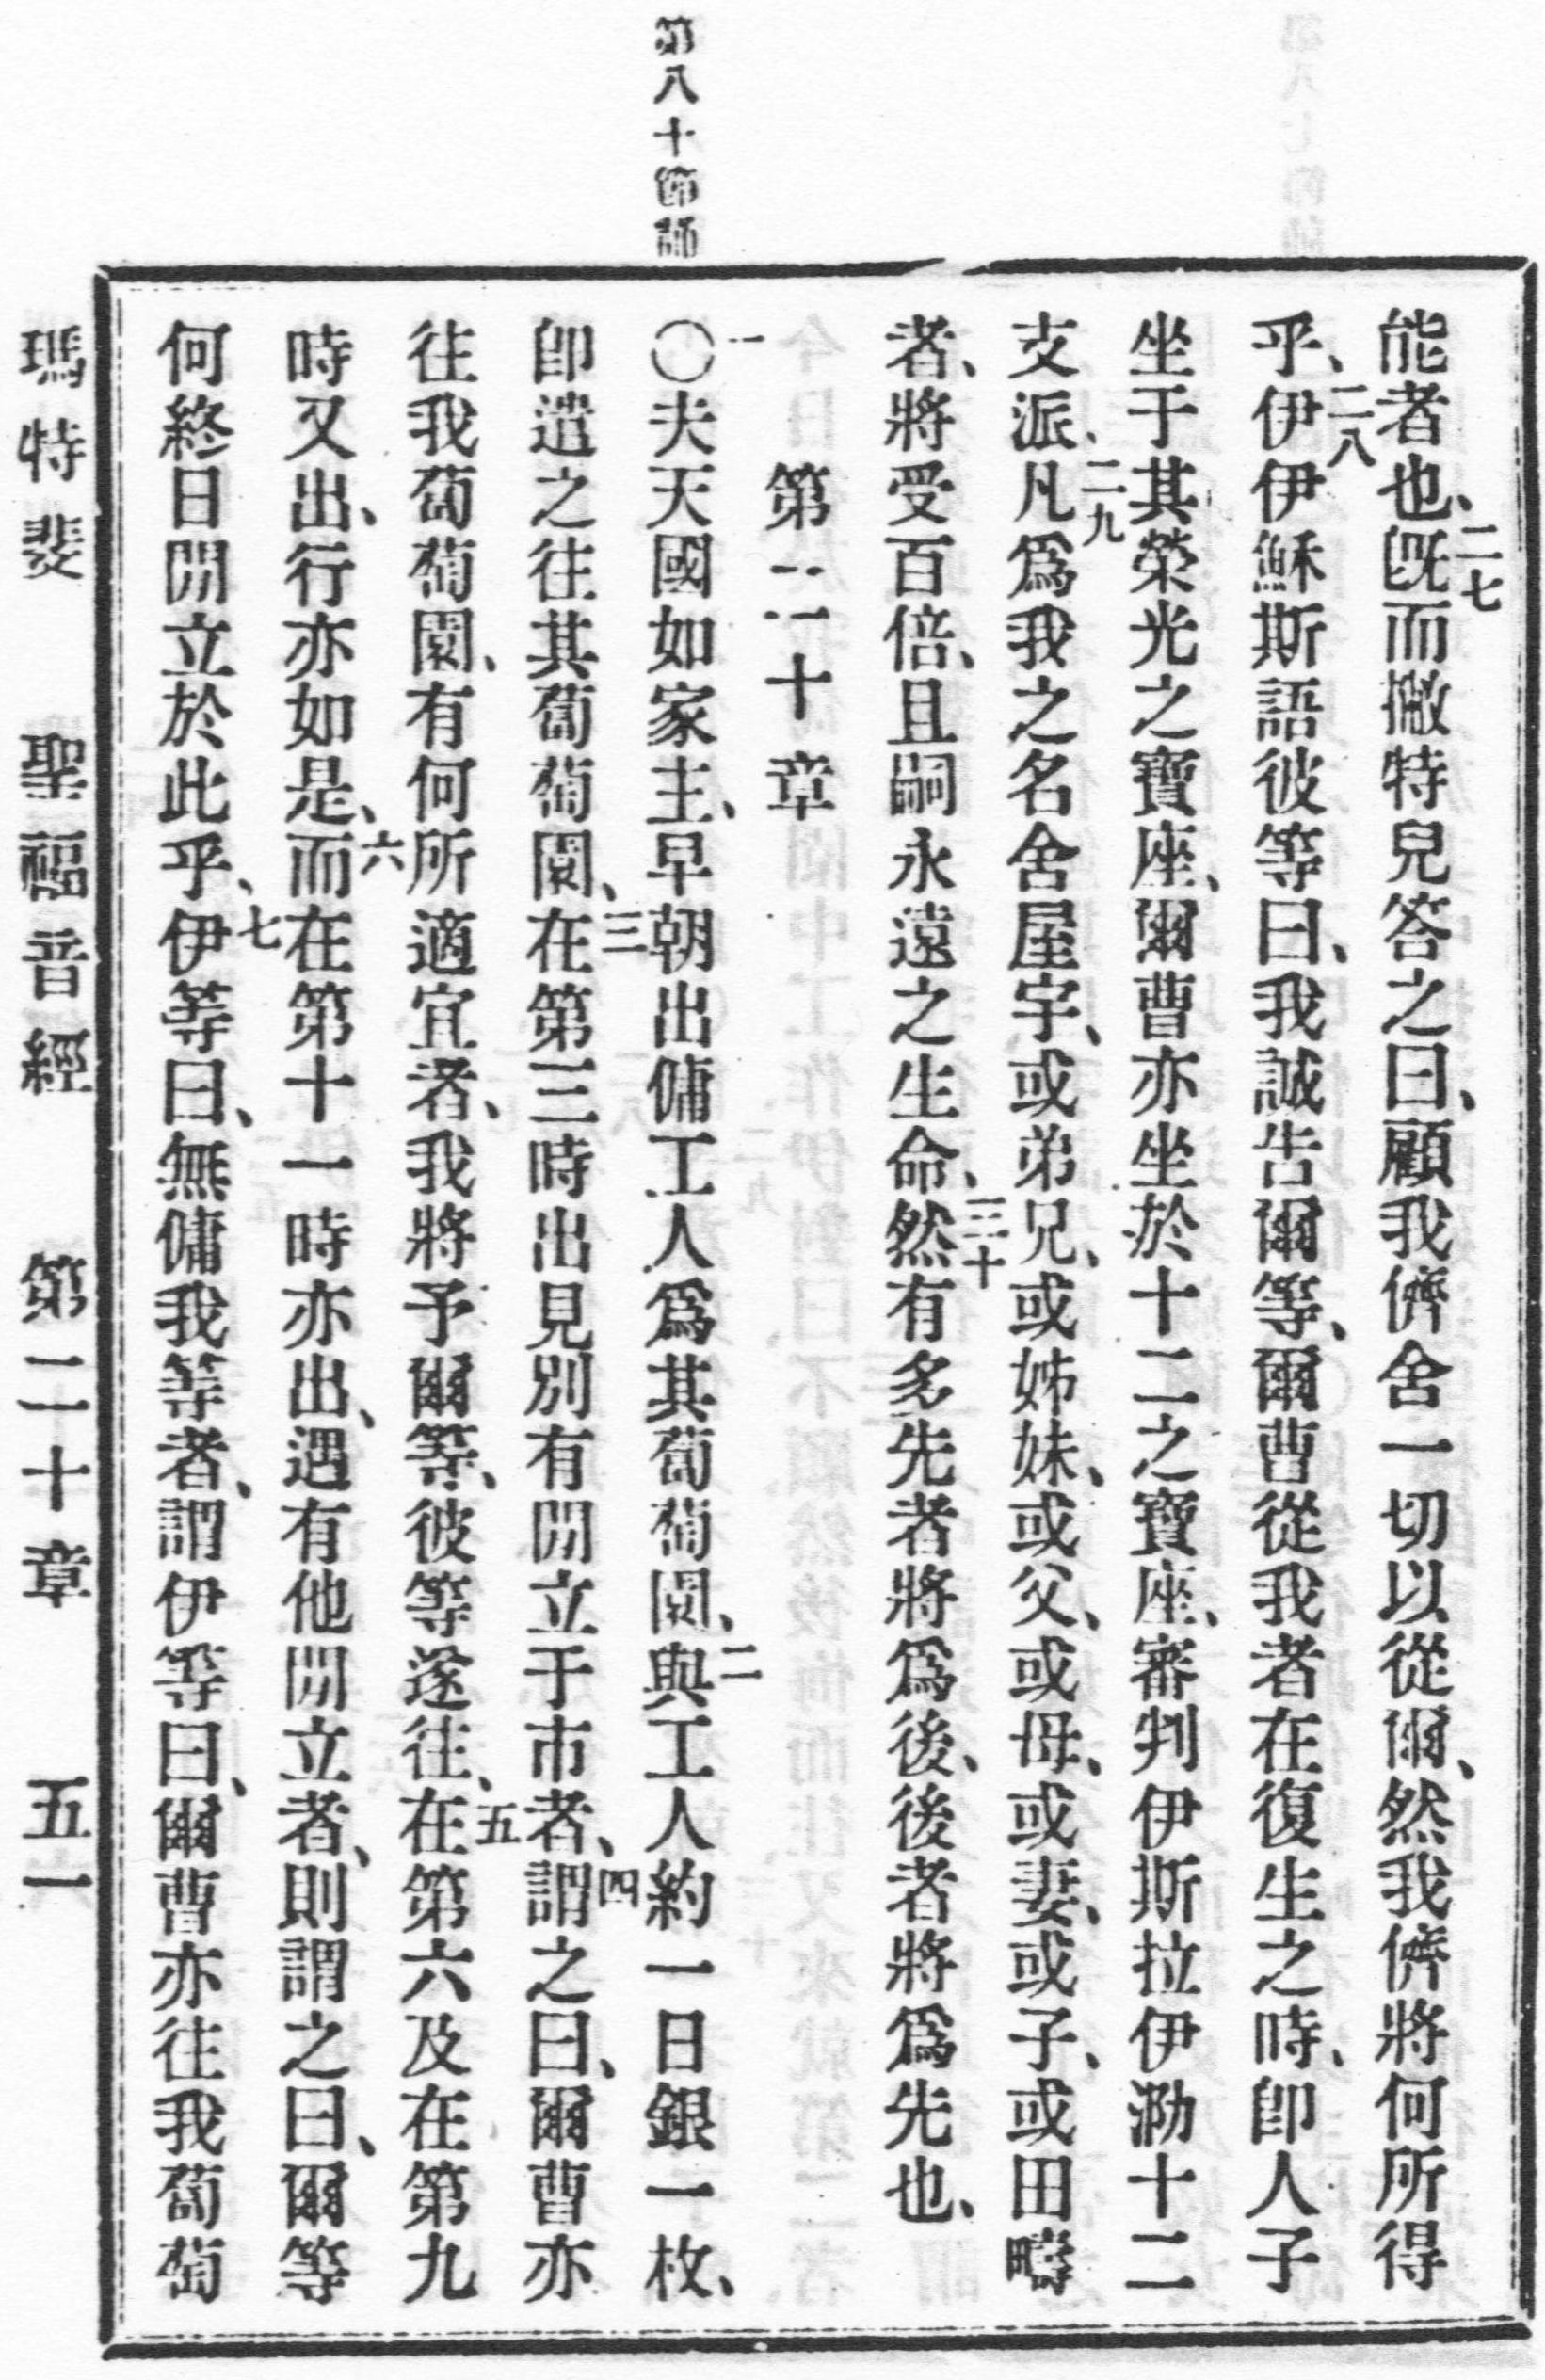 第八十節師
能者也、二七旣而撇特兒答之曰、顧我儕舍一切以從爾、然我儕將何所得
乎、二八伊伊穌斯語彼等曰、我誠吿爾等、爾曹從我者在復生之時、卽人子
坐于其榮光之寶座、爾曹亦坐於十二之寶座、審判伊斯拉伊泐十二
支派、二九凡爲我之名舍屋宇、或弟兄、或姊妹、或父、或母、或妻、或子、或田疇
者、將受百倍、且嗣永遠之生命、三十然有多先者將爲後、後者將爲先也、
第二十章
一〇夫天國如家主、早朝出傭工人爲其葡萄園、二與工人約一日銀一枚、
卽遣之往其葡萄園、三在第三時出見別有閒立于市者、四謂之曰、爾曹亦
往我葡萄園、有何所適宜者、我將予爾等、彼等遂往、五在第六及在第九
時又出、行亦如是、六而在第十一時亦出、遇有他閒立者、則謂之曰、爾等
何終日閒立於此乎、七伊等曰、無傭我等者、謂伊等曰、爾曹亦往我葡萄
瑪特斐 聖福音經 第二十章 五一